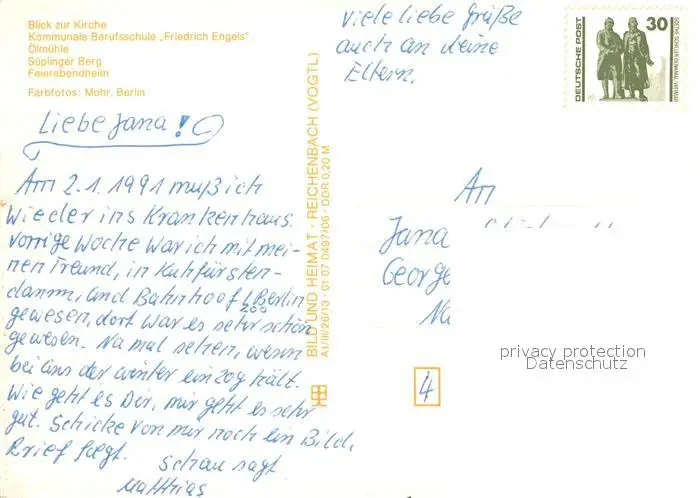 Blick zur Kirche
Kommunale Berufsschule „Friedrich Engels"
Ölmühle
Süplinger Berg
Feierabendheim
Farbfotos: Mohr, Berlin
Liebe Jana!
Am 2.1.1991 muß ich
wieder ins Krankenhaus.
vorrige Woche war ich mit mei-
nen Freund, in Kuhfürsten-
damm, und Bahnhoof Zoo Berlin
gewesen, dort war es sehr schön
gewesen. Na mal sehen, wenn
bei uns der winter einzog hält.
Wie geht es Dir, mir geht es sehr
gut. Schicke von mir noch ein Bild,
Brief folgt.
Schau sagt
Matthias
viele liebe Grüße
auch an deine
Eltern.
BILD UND HEIMAT · REICHENBACH (VOGTL)
A1/III/26/13 · 01 07 0497/06 · DDR 0,20 M
DEUTSCHE POST
30
GOETHE-SCHILLER-DENKMAL, WEIMAR
An
Jana
George
Na
4
privacy protection
Datenschutz